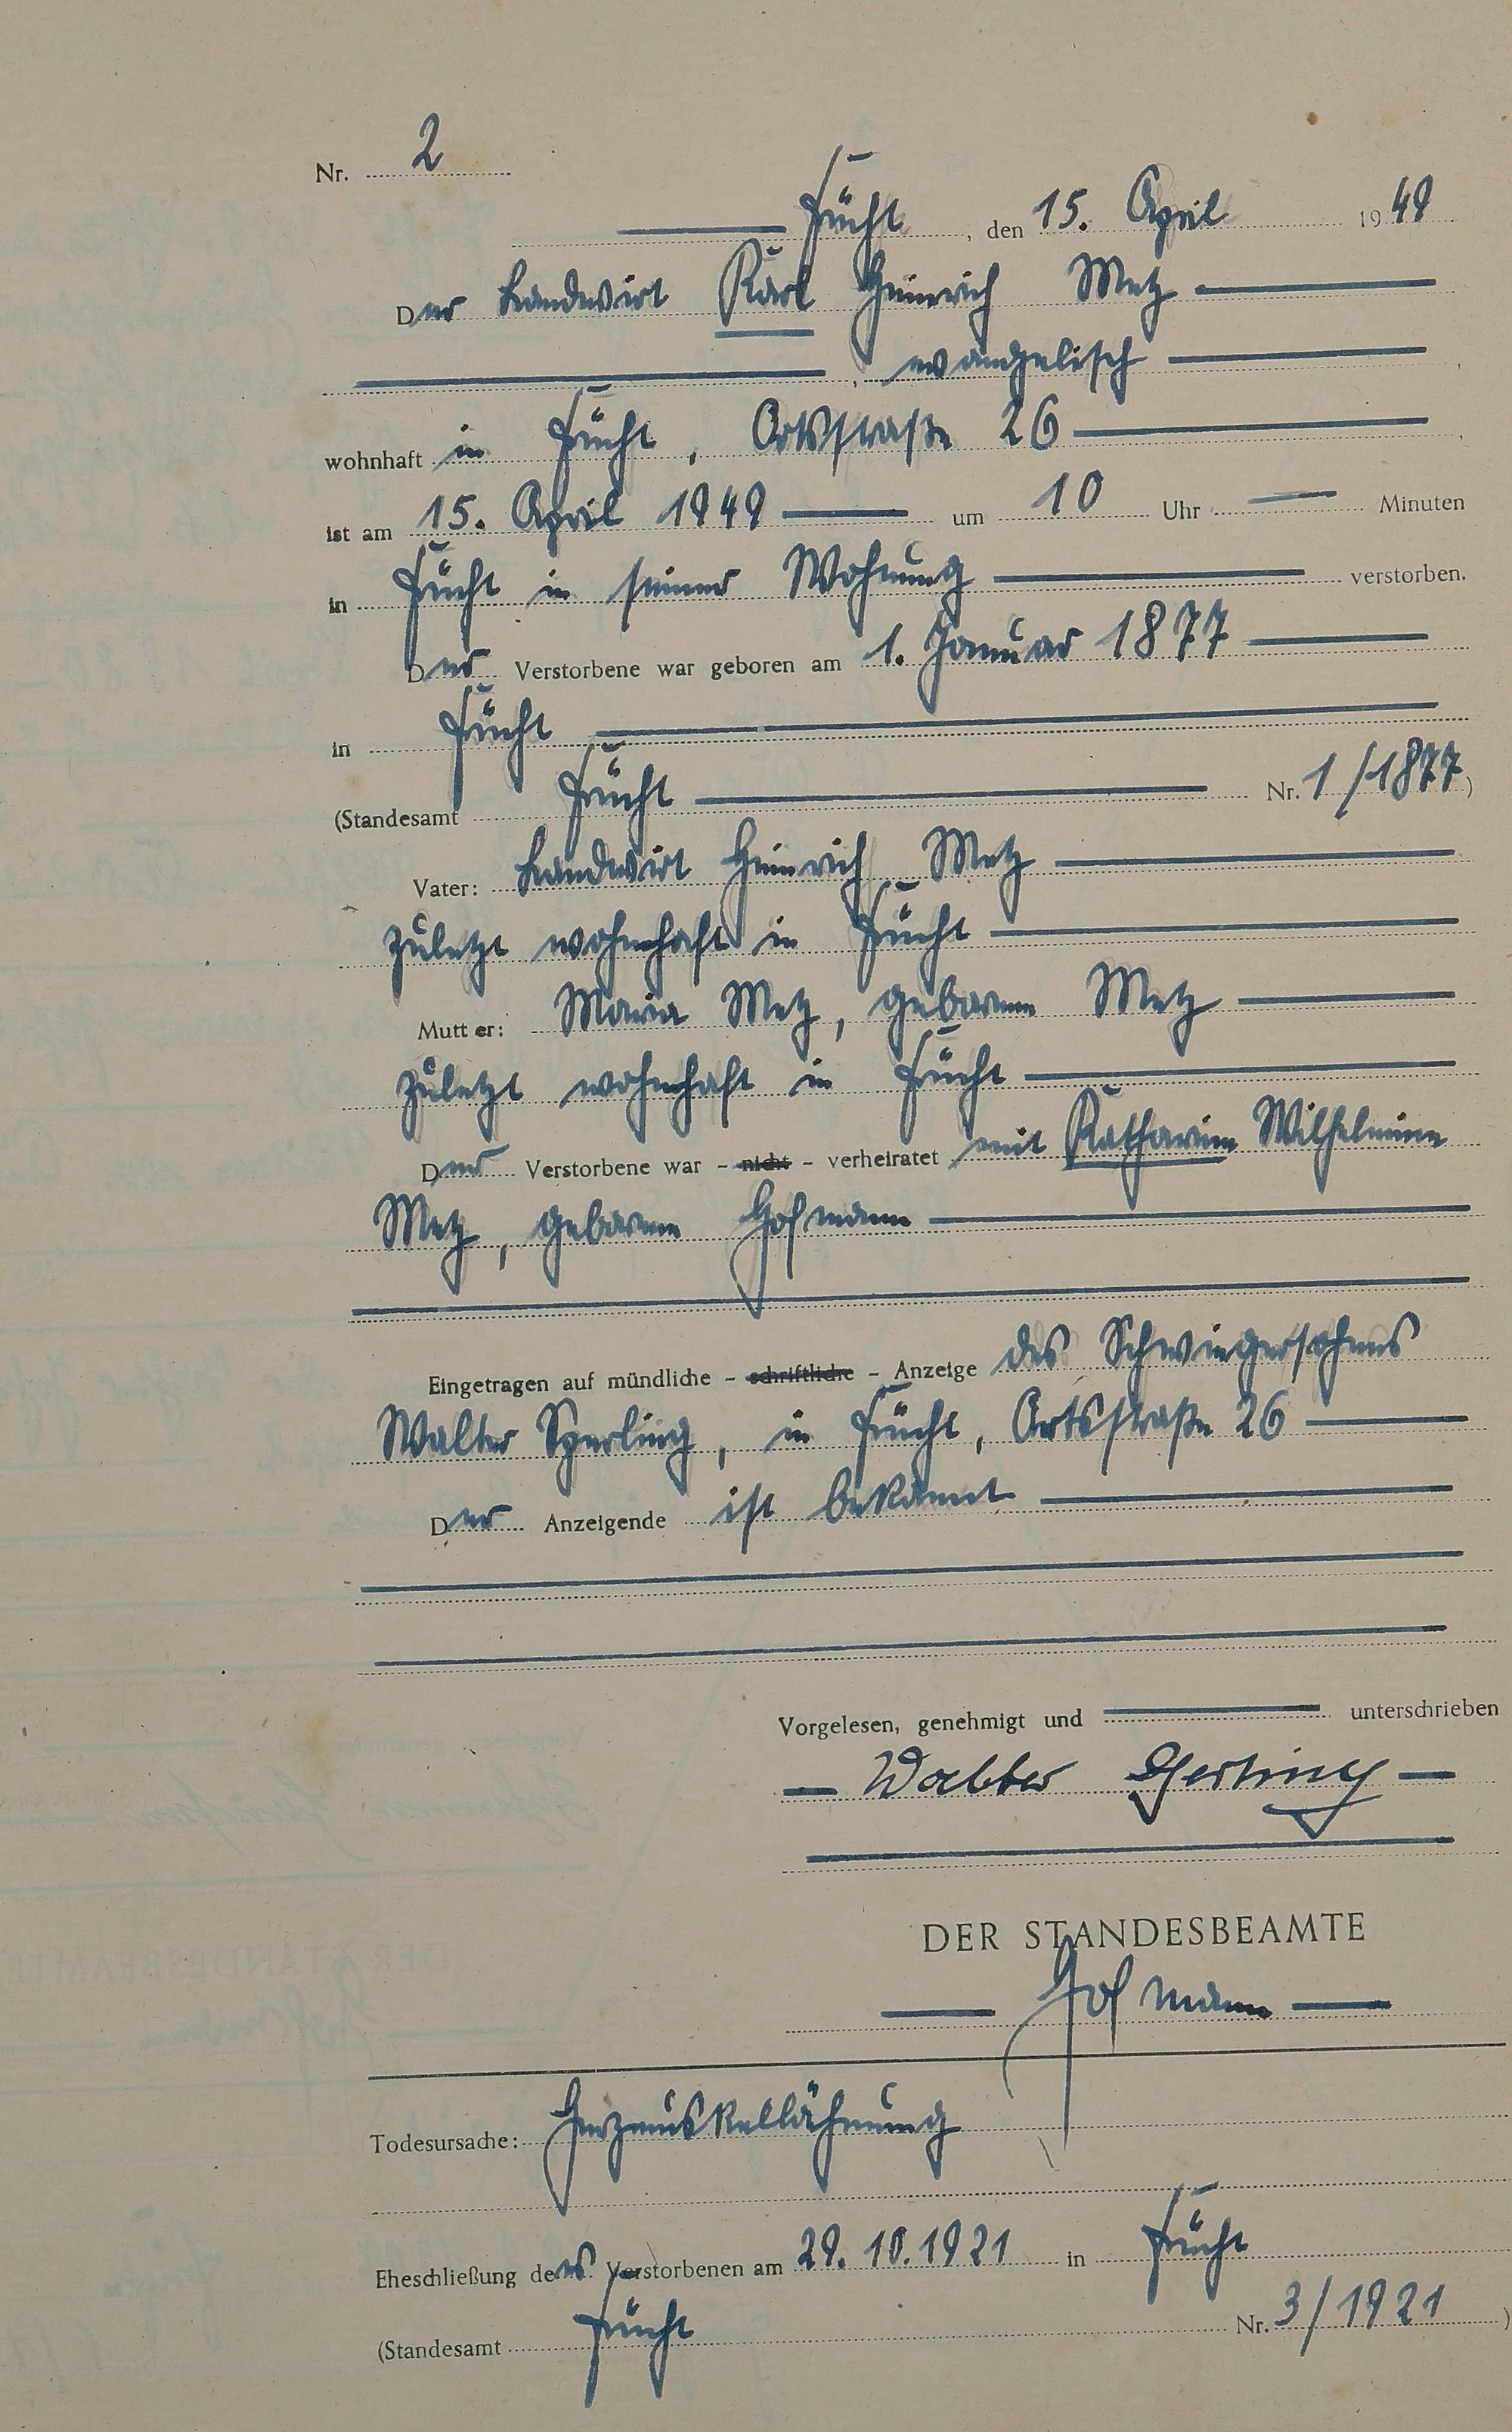 Nr. 2
Fücht, den 15. April 1949
Der Landwirt Karl Heinrich Metz
, evangelisch
wohnhaft in Fücht, Ortsstraße 26
ist am 15. April 1949 um 10 Uhr Minuten
in Fücht in seiner Wohnung verstorben.
Der Verstorbene war geboren am 1. Januar 1877
in Fücht
(Standesamt Fücht Nr. 1/1877)
Vater: Landwirt Heinrich Metz
zuletzt wohnhaft in Fücht
Mutter: Maria Metz, geborene Metz
zuletzt wohnhaft in Fücht
Der Verstorbene war - nicht - verheiratet mit Katharine Wilhelmine
Metz, geborene Hofmann
Eingetragen auf mündliche - schriftliche - Anzeige des Schwiegersohnes
Walter Sperling, in Fücht, Ortsstraße 26
Der Anzeigende ist bekannt
Vorgelesen, genehmigt und unterschrieben
Walter Sperling
DER STANDESBEAMTE
Hofmann
Todesursache: Herzmuskellähmung
Eheschließung des Verstorbenen am 29.10.1921 in Fücht
(Standesamt Fücht Nr. 3/1921)